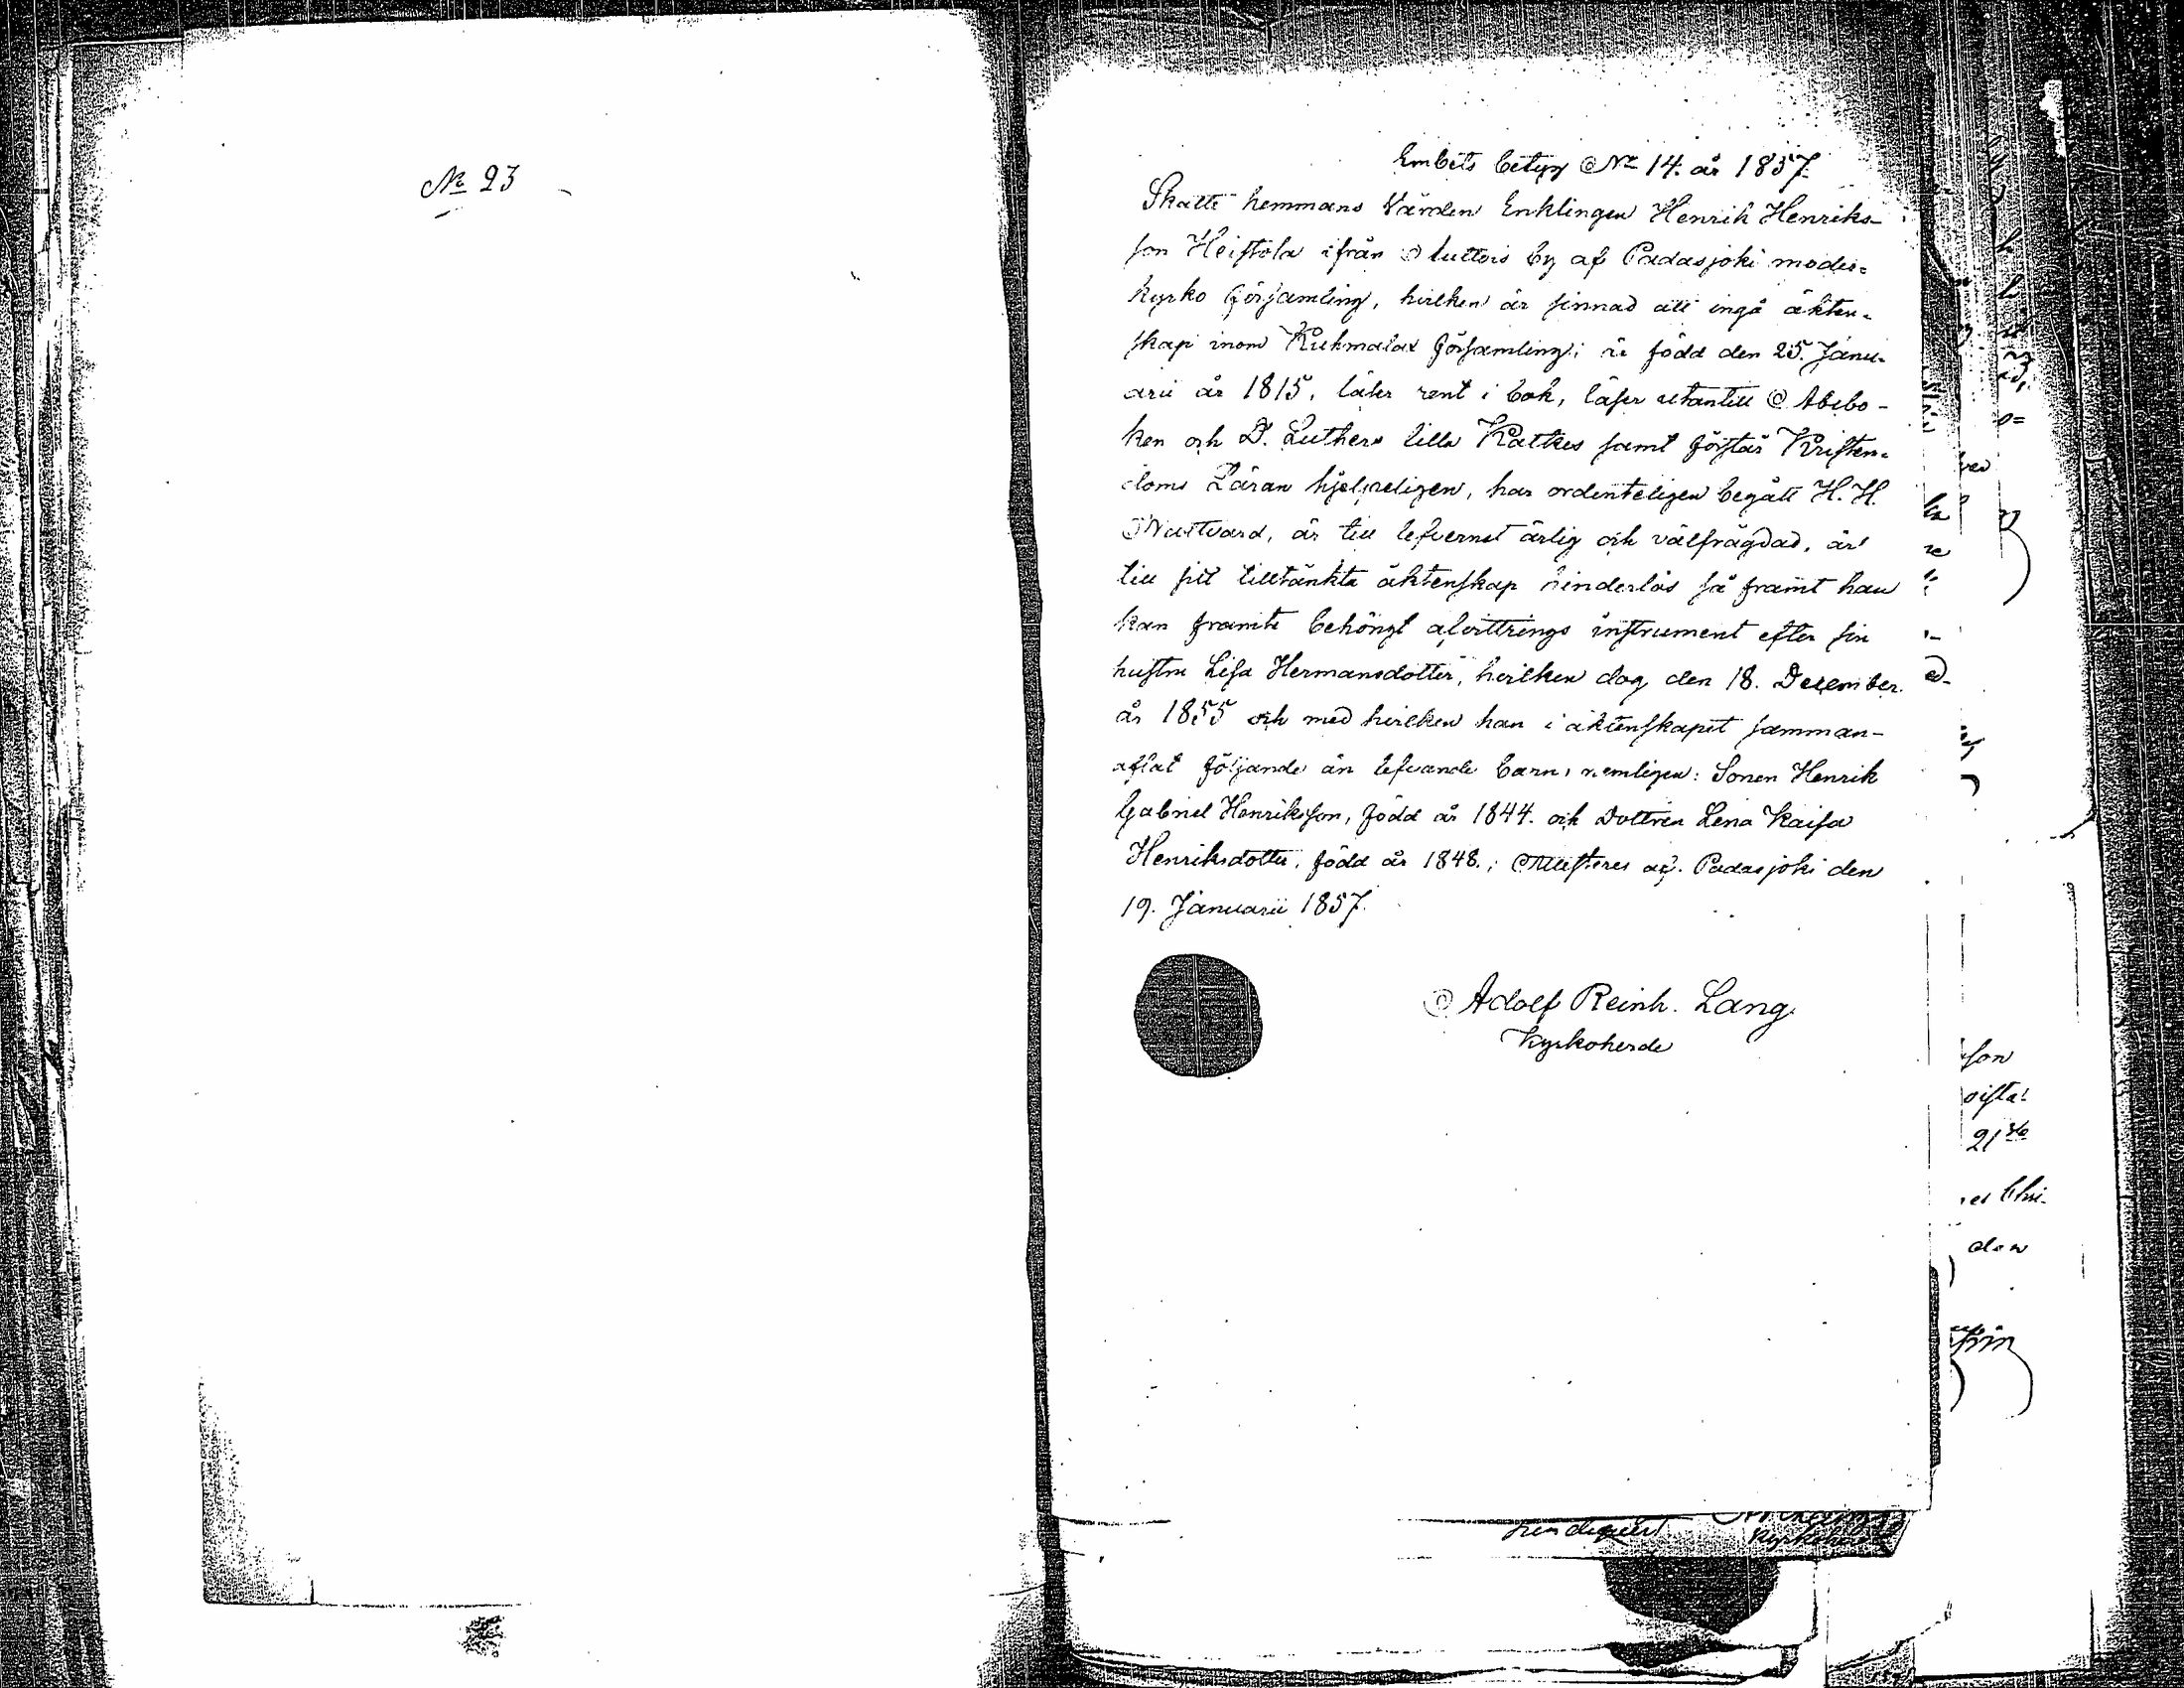 No 23
Embets betyg No 14. år 1857.
Skatte hemmans Värden Enklingen Henrik Henriks-
son Heistola ifrån Auttois by af Padasjoki moder=
kyrko församling, hvilken är sinnad att ingå äkten=
skap inom Kuhmalax församling; är född den 25. Janu=
arii år 1815, läser rent i bok, läser utantill Abcbo-
ken och D. Luthers lilla Katkes samt förstår Kristen=
doms Läran hjelpeligen, har ordenteligen begått H. H.
Nattvard, är till lefvernet ärlig och välfrägdad, är
till sitt tilltänkta äktenskap hinderlös så framt han
kan framte behörigt afvittrings instrument efter sin
hustru Lisa Hermansdotter, hvilken dog den 18. December
år 1855 och med hvilken han i äktenskapet samman-
aflat följande än lefvande barn, nemligen: Sonen Henrik
Gabriel Henriksson, född år 1844. och Dottren Lena Kaisa
Henriksdotter, född år 1848.; Attesteres af. Padasjoki den
19. Januarii 1857.
Adolf Reinh. Lang
Kyrkoherde
son
21
den